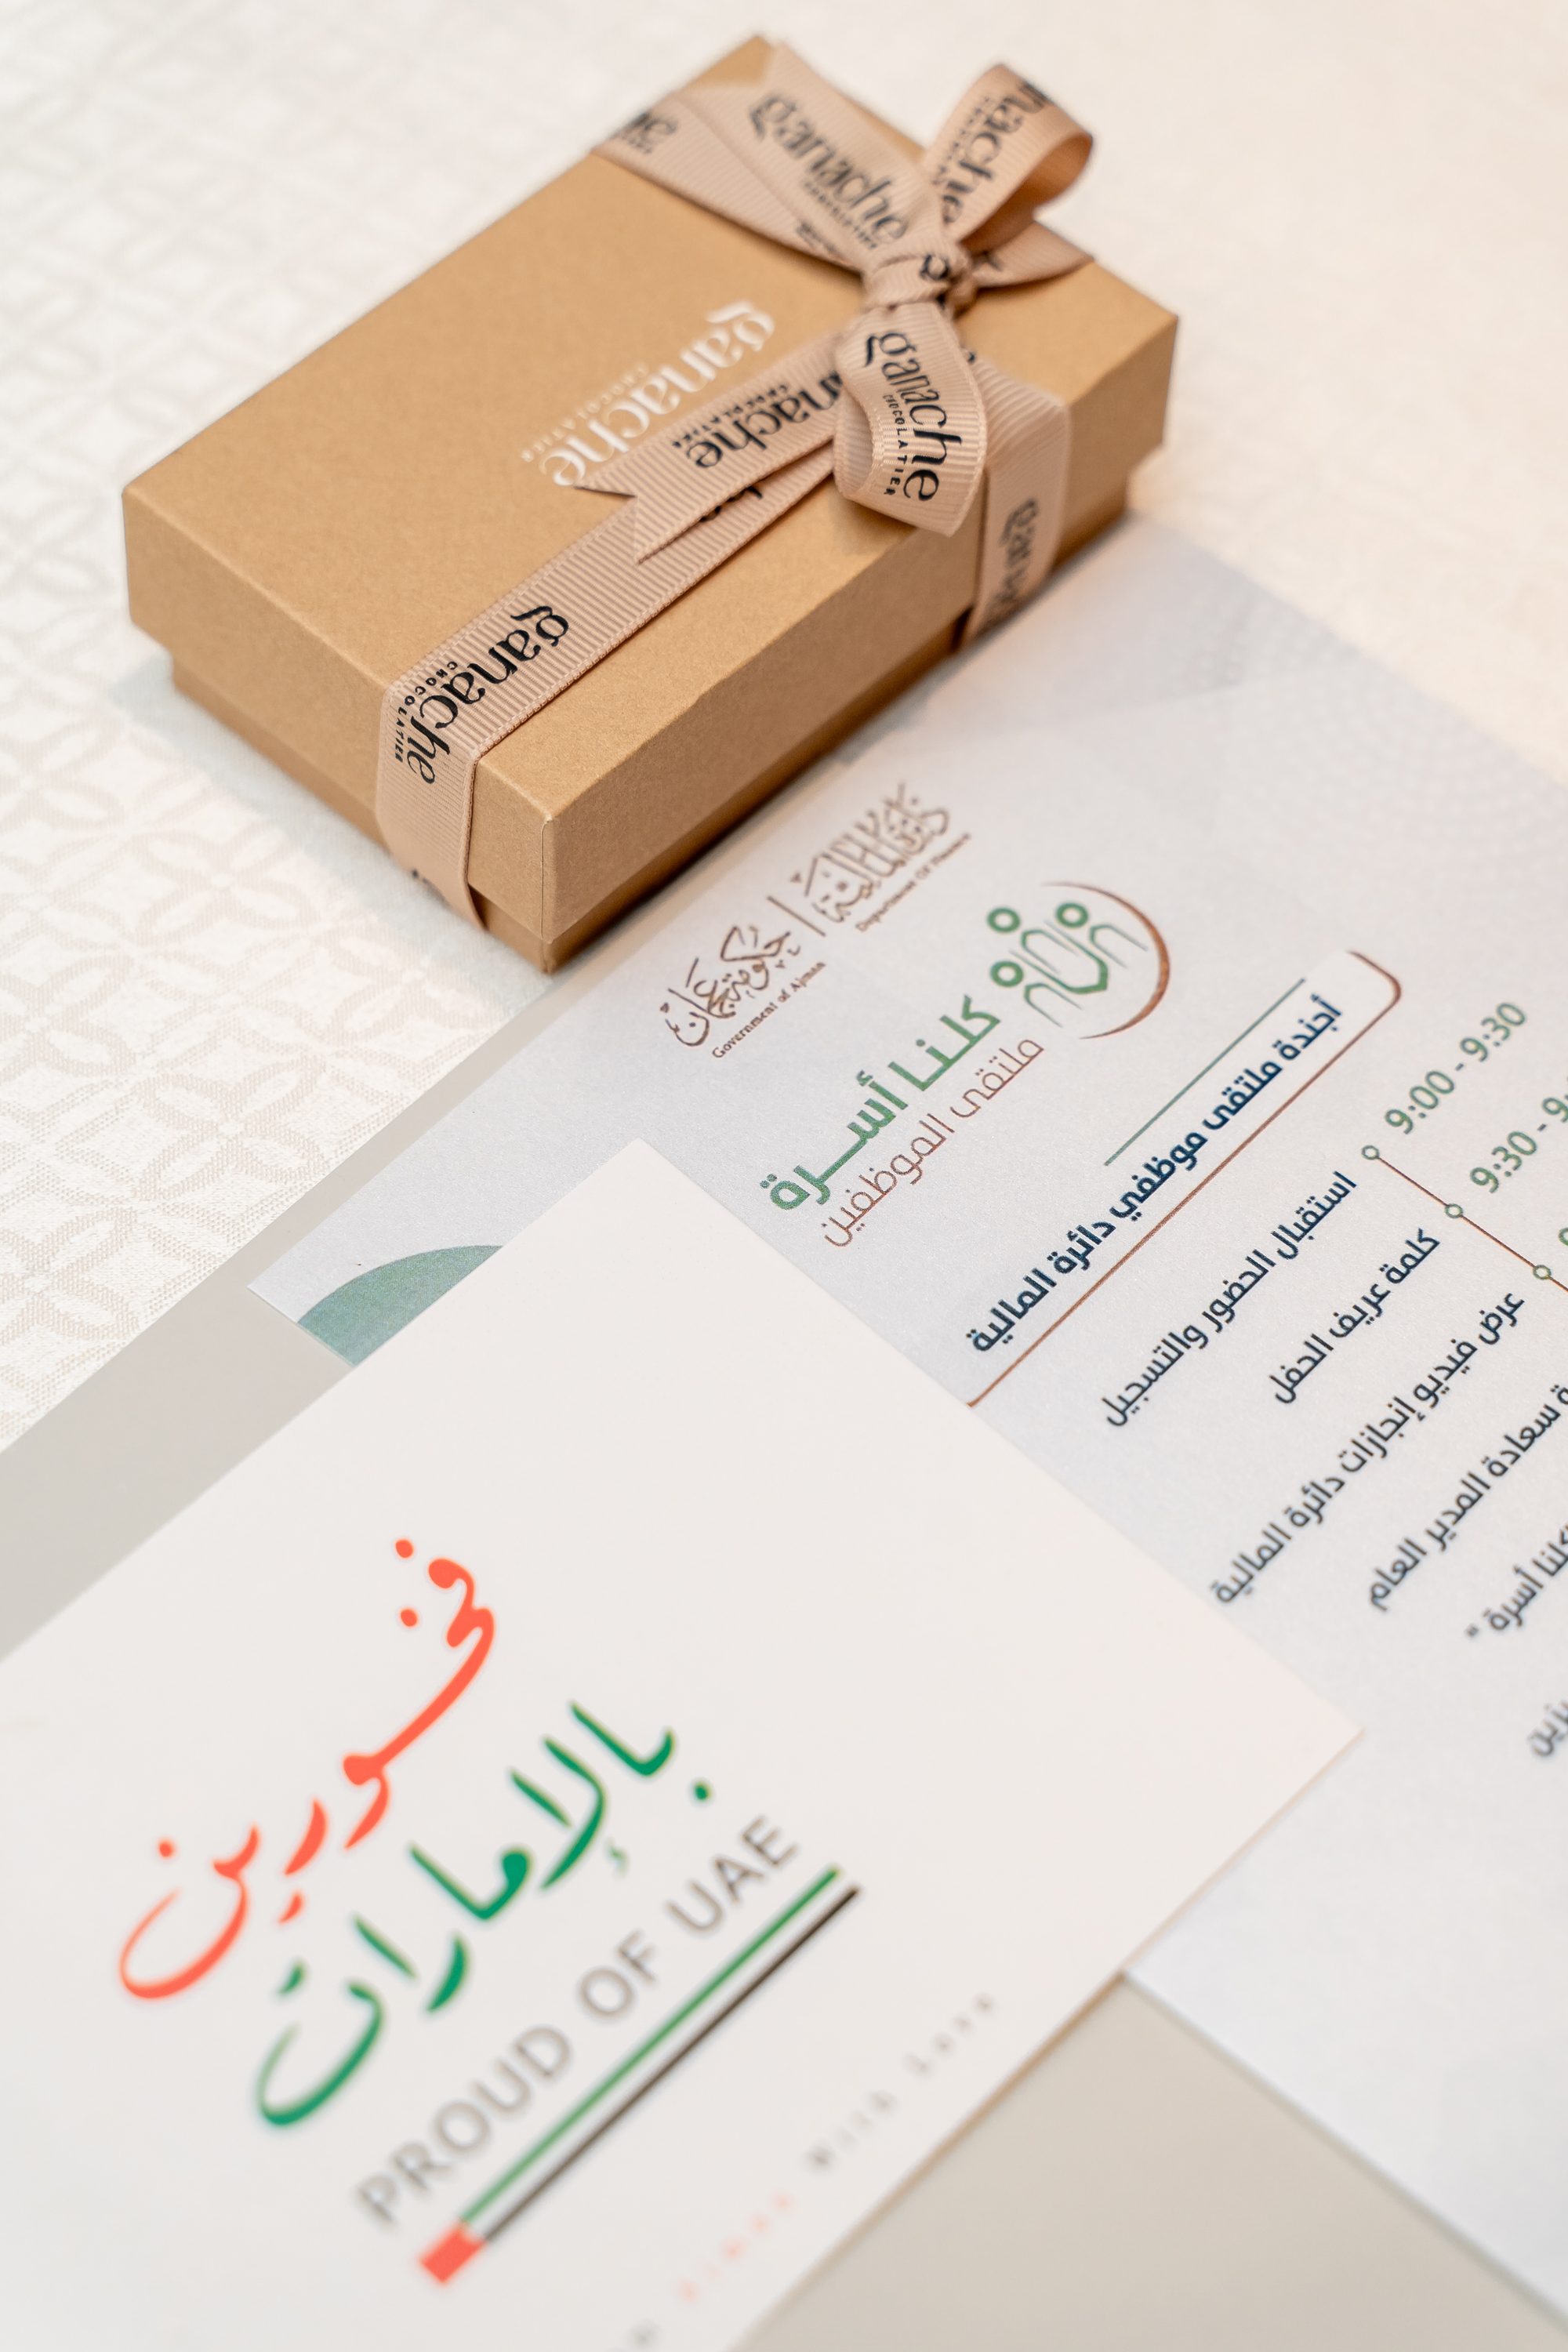 ganache
CHOCOLATIER
ganache
CHOCOLATIER
ganache
CHOCOLATIER
ganache
CHOCOLATIER
ganache
CHOCOLATIER
حكومة عجمان
Government of Ajman
دائرة المالية
Department Of Finance
كلنا أسرة
ملتقى الموظفين
أجندة ملتقى موظفي دائرة المالية
9:00 - 9:30
استقبال الحضور والتسجيل
9:30 -
كلمة عريف الحفل
عرض فيديو إنجازات دائرة المالية
سعادة المدير العام
كلنا أسرة "
فخورين
بالإمارات
PROUD OF UAE
With Love